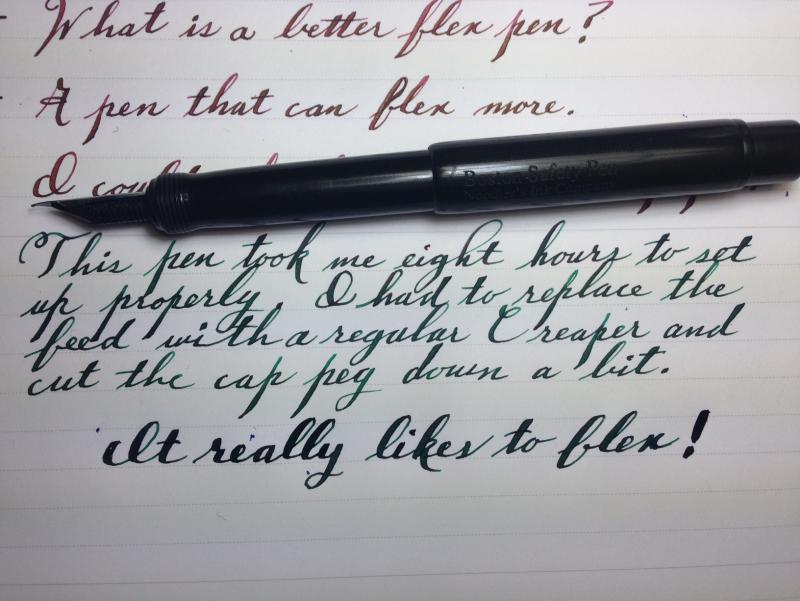 What is a better flex pen?
A pen that can flex more.
I
Boston Safety Pen
Noodler's Ink Company
This pen took me eight hours to set
up properly. I had to replace the
feed with a regular Creaper and
cut the cap peg down a bit.
It really likes to flex!